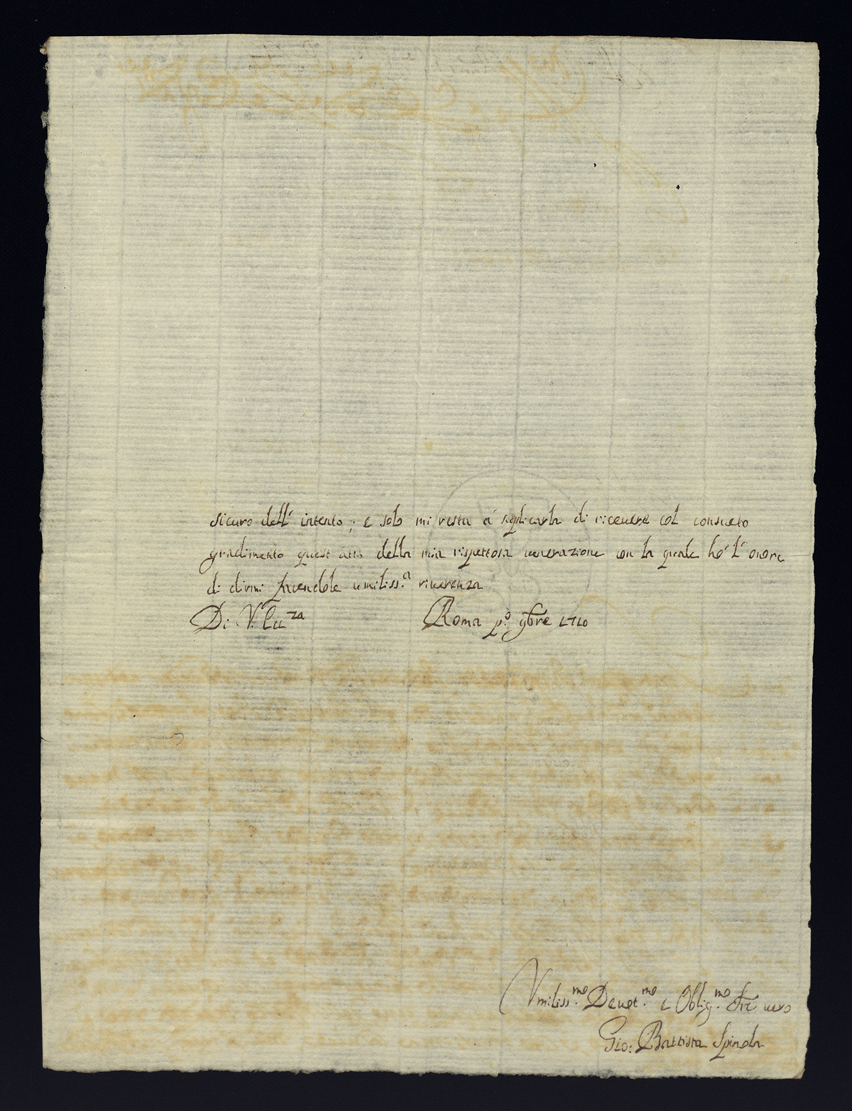 sicuro dell' intento; e solo mi resta á suplicarla di riceuere col consueto
gradimento quest' atto della mia rispettosa uenerazione con la quale hó l' onore
di dirmi facendole umiliss.a riuerenza
Di V. Ecc.za Roma p.o 9bre 1710
Vmiliss.mo Deuot.mo e Oblig.mo uero
Gio: Battista Spinola